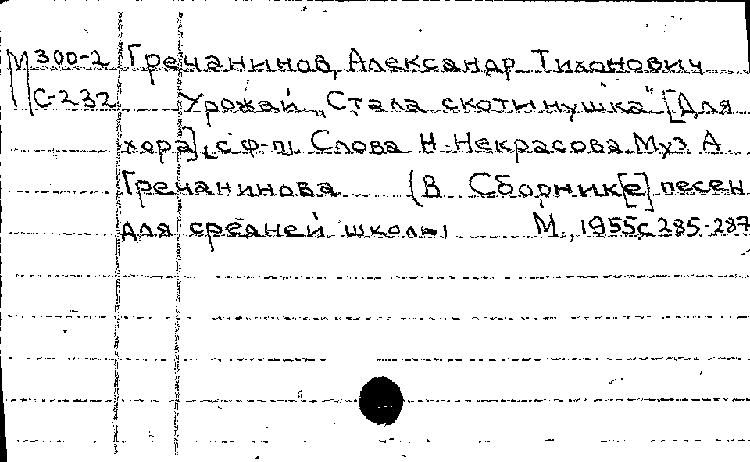 М 300-2 Гречанинов, Александр Тихонович
С-232 Урожай „Стала скотинушка" [Для
хора], с ф-п. Слова Н. Некрасова. Муз. А.
Гречанинова (В Сборник[е] песен
для средней школы М., 1955 с 285-287